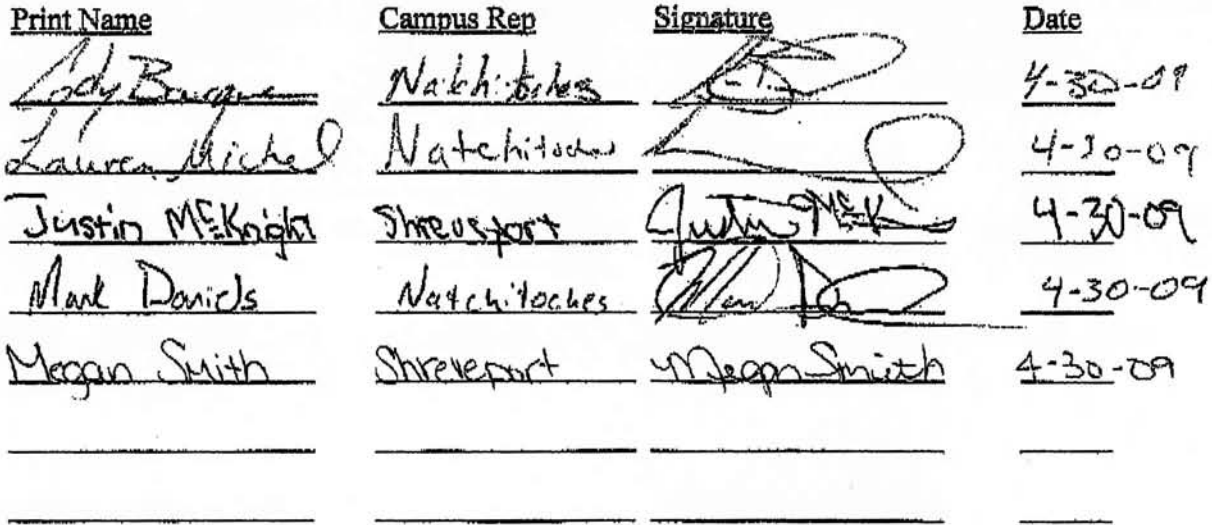 Print Name Campus Rep Signature Date
Cody Bourque Natchitoches 4-30-09
Lauren Michel Natchitoches 4-30-09
Justin McKnight Shreveport Justin McK 4-30-09
Mark Daniels Natchitoches 4-30-09
Megan Smith Shreveport Megan Smith 4-30-09